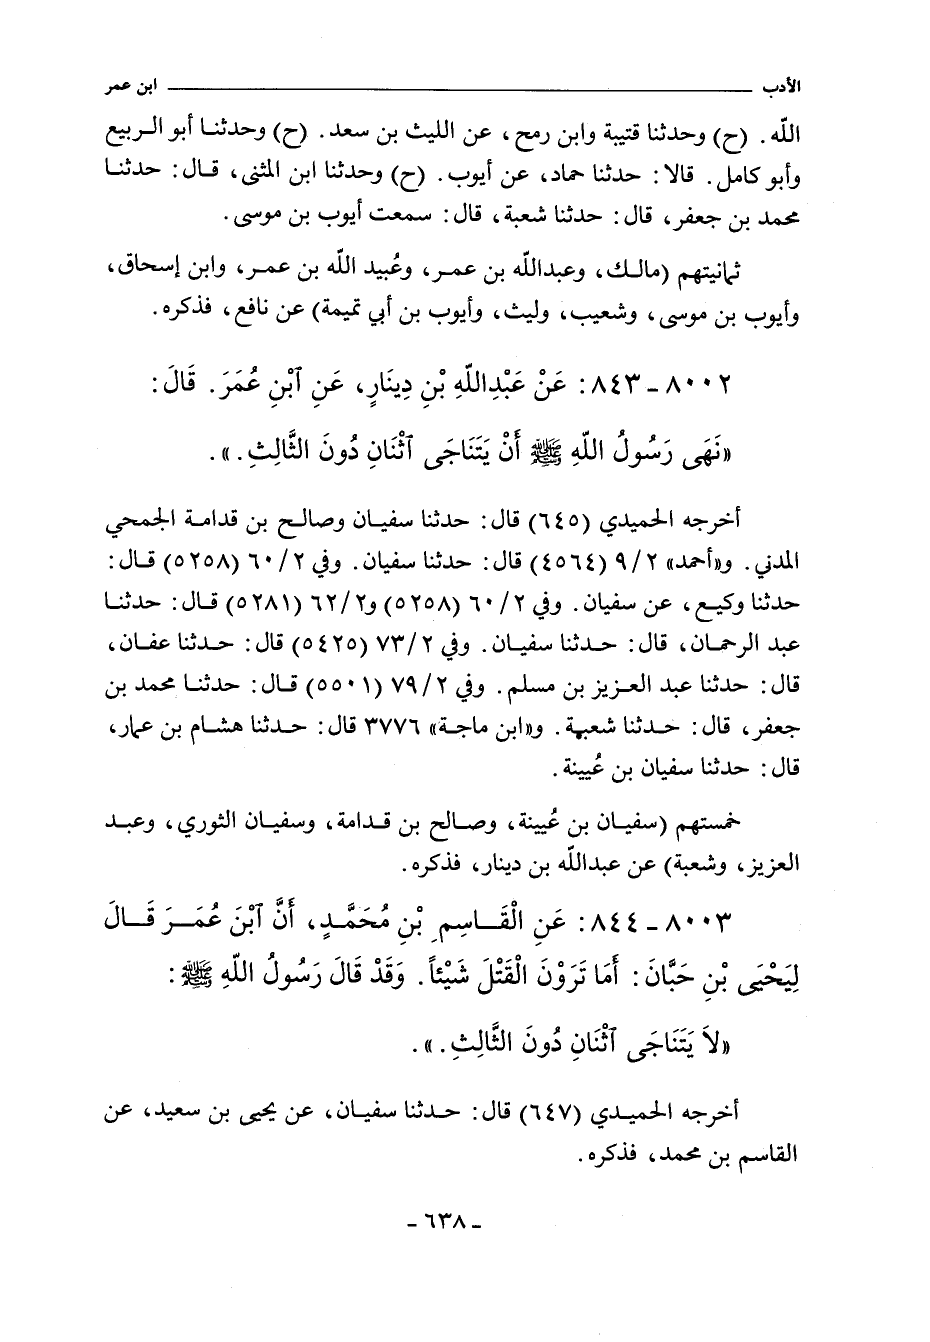 الأدب ـــــــــــــــــــــــــــــــــــــــــــــــــــــــــــــــــ ابن عمر
اللّه. (ح) وحدثنا قتيبة وابن رمح، عن الليث بن سعد. (ح) وحدثنا أبو الربيع
وأبو كامل. قالا: حدثنا حماد، عن أيوب. (ح) وحدثنا ابن المثنى، قال: حدثنا
محمد بن جعفر، قال: حدثنا شعبة، قال: سمعت أيوب بن موسى.
ثمانيتهم (مالك، وعبداللّه بن عمر، وعُبيد اللّه بن عمر، وابن إسحاق،
وأيوب بن موسى، وشعيب، وليث، وأيوب بن أبي تميمة) عن نافع، فذكره.
٨٠٠٢ - ٨٤٣: عَنْ عَبْدِاللّهِ بْنِ دِينَارٍ، عَنِ ٱبْنِ عُمَرَ. قَالَ:
«نَهَى رَسُولُ اللّهِ ﷺ أَنْ يَتَنَاجَى ٱثْنَانِ دُونَ الثَّالِثِ.».
أخرجه الحميدي (٦٤٥) قال: حدثنا سفيان وصالح بن قدامة الجمحي
المدني. و«أحمد» ٩/٢ (٤٥٦٤) قال: حدثنا سفيان. وفي ٦٠/٢ (٥٢٥٨) قال:
حدثنا وكيع، عن سفيان. وفي ٦٠/٢ (٥٢٥٨) و٦٢/٢ (٥٢٨١) قال: حدثنا
عبد الرحمان، قال: حدثنا سفيان. وفي ٧٣/٢ (٥٤٢٥) قال: حدثنا عفان،
قال: حدثنا عبد العزيز بن مسلم. وفي ٧٩/٢ (٥٥٠١) قال: حدثنا محمد بن
جعفر، قال: حدثنا شعبة. و«ابن ماجة» ٣٧٧٦ قال: حدثنا هشام بن عمار،
قال: حدثنا سفيان بن عُيينة.
خمستهم (سفيان بن عُيينة، وصالح بن قدامة، وسفيان الثوري، وعبد
العزيز، وشعبة) عن عبداللّه بن دينار، فذكره.
٨٠٠٣ - ٨٤٤: عَنِ الْقَاسِمِ بْنِ مُحَمَّدٍ، أَنَّ ٱبْنَ عُمَرَ قَالَ
لِيَحْيَى بْنِ حَبَّانَ: أَمَا تَرَوْنَ الْقَتْلَ شَيْئاً. وَقَدْ قَالَ رَسُولُ اللّهِ ﷺ:
«لاَ يَتَنَاجَى ٱثْنَانِ دُونَ الثَّالِثِ.».
أخرجه الحميدي (٦٤٧) قال: حدثنا سفيان، عن يحيى بن سعيد، عن
القاسم بن محمد، فذكره.
- ٦٣٨ -